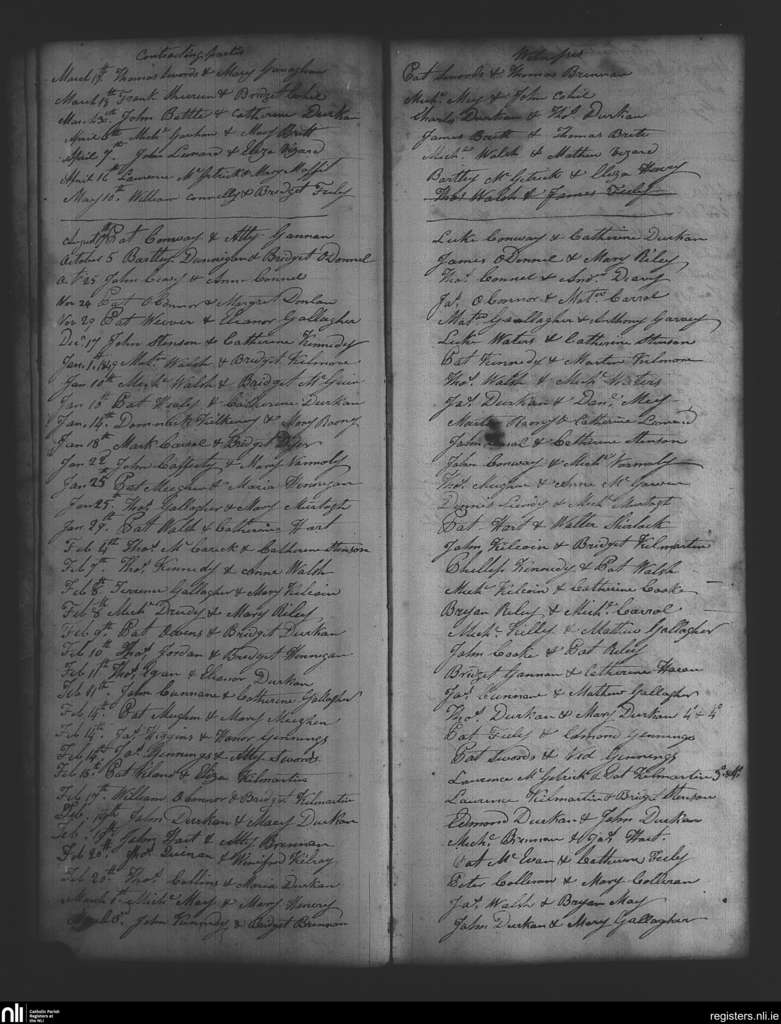 Contracting parties
March 17th Thomas Swords & Mary
March 19th Frank & Bridget
Mar. John Battle & Catherine Durkan
April 6th Michl & Mary Brett
April 7th John Leonard & Eliza
April 16th Laurence McGetrick & Mary Moffit
May 10th William Connelly & Bridget Feely
August Pat Conway & Atty Gannan
October 5 Bartley Dunnigan & Bridget O'Donnel
Oct 25 John & Anne Connel
Nov 24 Pat O'Connor & Margret Donlan
Nov 29 Pat Weaver & Eleanor Gallagher
Decr 17 John Stenson & Catherine Kennedy
Jan. 1st 1849 Matw Walsh & Bridget Kilmore
Jan 10th Michl Walsh & Bridget
Jan 13th Pat Healy & Catherine Durkan
Jan. 14th Dominick Kilkenny & Mary
Jan 18th Mark Casal & Bridget
Jan 22d John Cafferty & Mary
Jan 25th Pat Meeghan & Maria Finnigan
Jan 25th Thos Gallagher & Mary Murtagh
Jan 29th Patt Walsh & Catherine Hart
Feb 4th Thos & Catherine Stenson
Feb 7th Thos Kennedy & Anne Walsh
Feb 8th Terrence Gallagher & Mary Kilcoin
Feb 8th Michl & Mary Riley
Feb 9th Pat Owens & Bridget Durkan
Feb 10th Thos Jordan & Bridget Finnigan
Feb 11th Thos Egan & Eleanor Durkan
Feb 11th John Cunnane & Catherine Gallagher
Feb 14th Pat Meeghan & Mary Meeghan
Feb 14th Jas Higgins & Honor Gennings
Feb 14th Jas Gennings & Atty Swords
Feb 15th Pat & Eliza Kilmartin
Feb 17th William O'Connor & Bridget Kilmartin
Feb. 19th John Durkan & Mary Durkan
Feb. 19th John Hart & Atty Brennan
Feb 20th Thos & Winifred Kilroy
Feb 20th Thos Collins & Maria Durkan
March 1st Michl May & Mary Henery
March 5th John Kennedy & Bridget Brennan
Witnesses
Pat Swords & Thomas Brennan
Michl May & John
Charls Durkan & Thos Durkan
James Brett & Thomas Brett
Michl Walsh & Mathew
Bartley McGetrick & Eliza Henry
Thos Walsh & James Feely
Luke Conway & Catherine Durkan
James O'Donnel & Mary Riley
Thos Connel & Andw
Jas O'Connor & Matw Carrol
Matw Gallagher & Anthony Garvey
Luke Waters & Catherine Stenson
Pat Kennedy & Martin Kilmore
Thos Walsh & Michl Waters
Jas Durkan & Danl May
Martin & Catherine
John Casal & Catherine Stenson
John Conway & Michl
Thos Meeghan & Anne
Dennis & Michl Murtagh
Pat Hart & Walter
John Kilcoin & Bridget Kilmartin
Phillip Kennedy & Pat Walsh
Michl Kilcoin & Catherine Cooke
Bryan Riley & Michl Carrol
Michl Killey & Mathew Gallagher
John Cooke & Pat Riley
Bridget Gannan & Catherine
Jas Cunnane & Mathew Gallagher
Thos Durkan & Mary Durkan 4° & 4°
Pat Feely & Edmond Gennings
Pat Swords & Gennings
Laurence McGetrick & Pat Kilmartin
Laurence Kilmartin & Bridget Stenson
Edmond Durkan & John Durkan
Michl Brennan & Jas Hart
Pat & Catherine Feely
Peter Colleran & Mary Colleran
Jas Walsh & Bryan May
John Durkan & Mary Gallagher
nli
Catholic Parish
Registers at
the NLI
registers.nli.ie